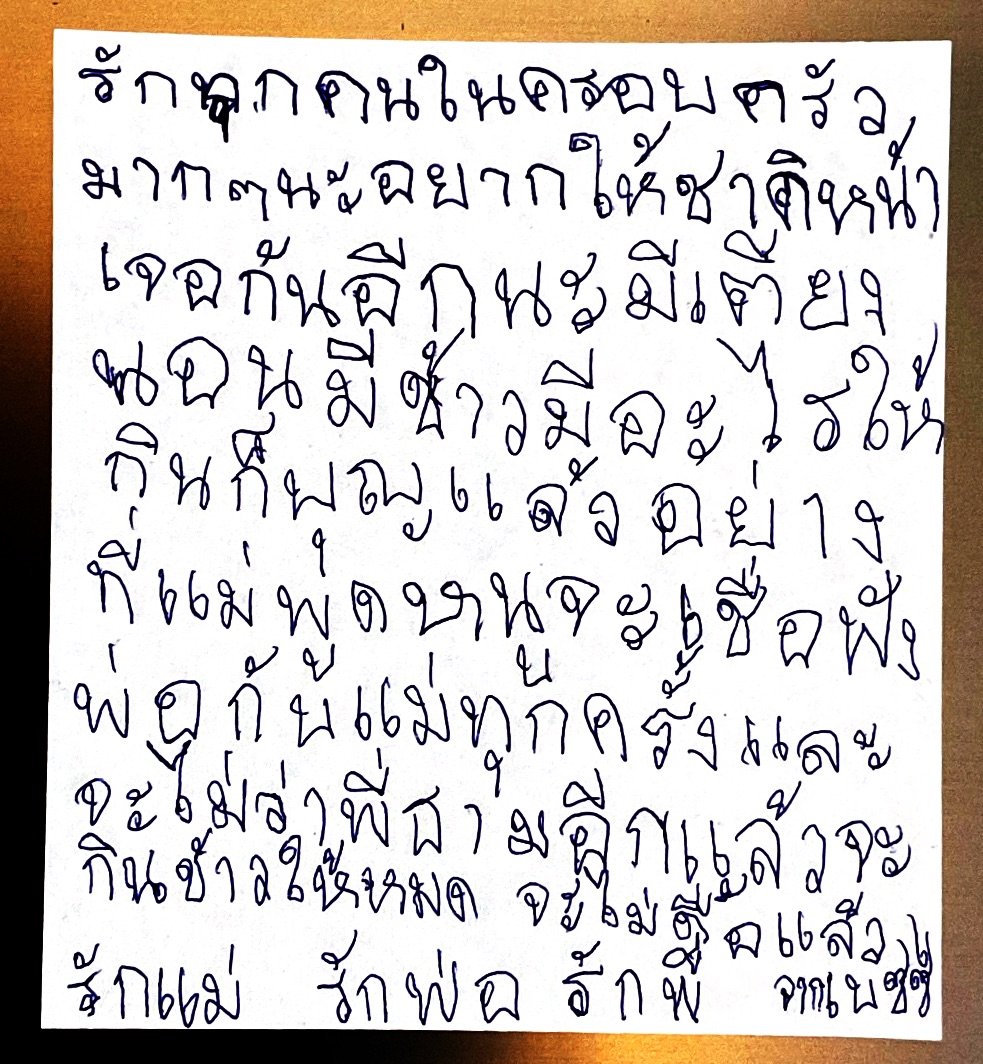 รักทุกคนในครอบครัว
มากๆนะอยากให้ชาติหน้า
เจอกันอีกนะมีเตียง
นอนมีข้าวมีอะไรให้
กินก็บุญแล้วอย่าง
ที่แม่พูดหนูจะเชื่อฟัง
พ่อกับแม่ทุกครั้งและ
จะไม่ว่าพี่ธามอีกแล้วจะ
กินข้าวให้หมด จะไม่ดื้อแล้ว
รักแม่ รักพ่อ รักพี่ จาก